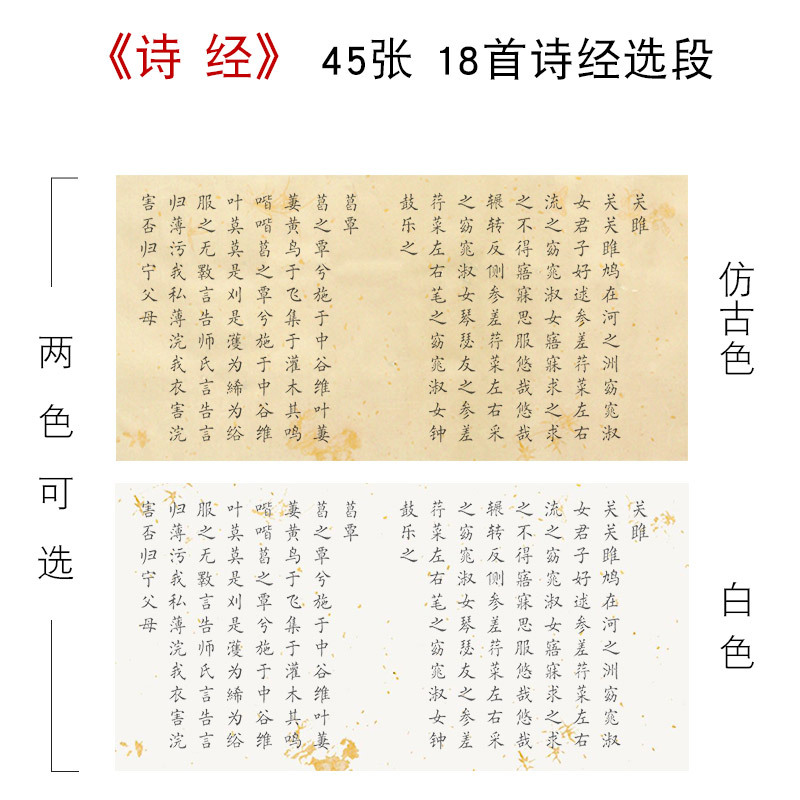 《诗 经》 45张 18首诗经选段
两色可选
关雎
关关雎鸠在河之洲窈窕淑
女君子好逑参差荇菜左右
流之窈窕淑女寤寐求之求
之不得寤寐思服悠哉悠哉
辗转反侧参差荇菜左右采
之窈窕淑女琴瑟友之参差
荇菜左右芼之窈窕淑女钟
鼓乐之
葛覃
葛之覃兮施于中谷维叶萋
萋黄鸟于飞集于灌木其鸣
喈喈葛之覃兮施于中谷维
叶莫莫是刈是濩为絺为绤
服之无斁言告师氏言告言
归薄污我私薄浣我衣害浣
害否归宁父母
仿古色
关雎
关关雎鸠在河之洲窈窕淑
女君子好逑参差荇菜左右
流之窈窕淑女寤寐求之求
之不得寤寐思服悠哉悠哉
辗转反侧参差荇菜左右采
之窈窕淑女琴瑟友之参差
荇菜左右芼之窈窕淑女钟
鼓乐之
葛覃
葛之覃兮施于中谷维叶萋
萋黄鸟于飞集于灌木其鸣
喈喈葛之覃兮施于中谷维
叶莫莫是刈是濩为絺为绤
服之无斁言告师氏言告言
归薄污我私薄浣我衣害浣
害否归宁父母
白色